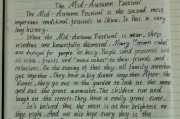 The Mid-Autumn Festival
The Mid-Autumn Festival is the second most
important traditional festivals in China. It has a very
long history.
When the Mid-Autumn Festival is near, shop
windows are beautifully decorated. Many "moon cakes"
are displayed for people to buy. People send presents such
as wine, fruits, and "moon cakes" to their friends and
relatives. In the evening of that day, all family members
get together. They have a big dinner together. After the
dinner, they go to the garden to look at the moon
and eat the great mooncake. The children run and
laugh on the streets. They have a really great time.
It's believed that the moon is at her brightest on
this night. And we also hope every day is the